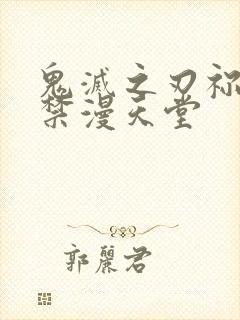 鬼滅之刃祢
禁漫天堂
郭麗君